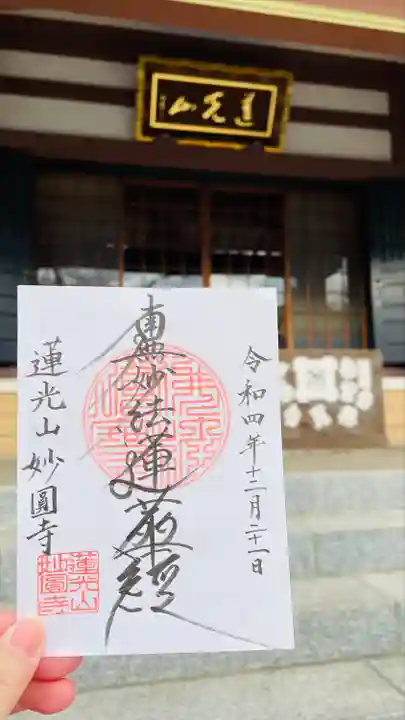 蓮光山
令和四年十二月二十一日
南無妙法蓮華経
蓮光山妙圓寺
蓮光山
妙圓寺